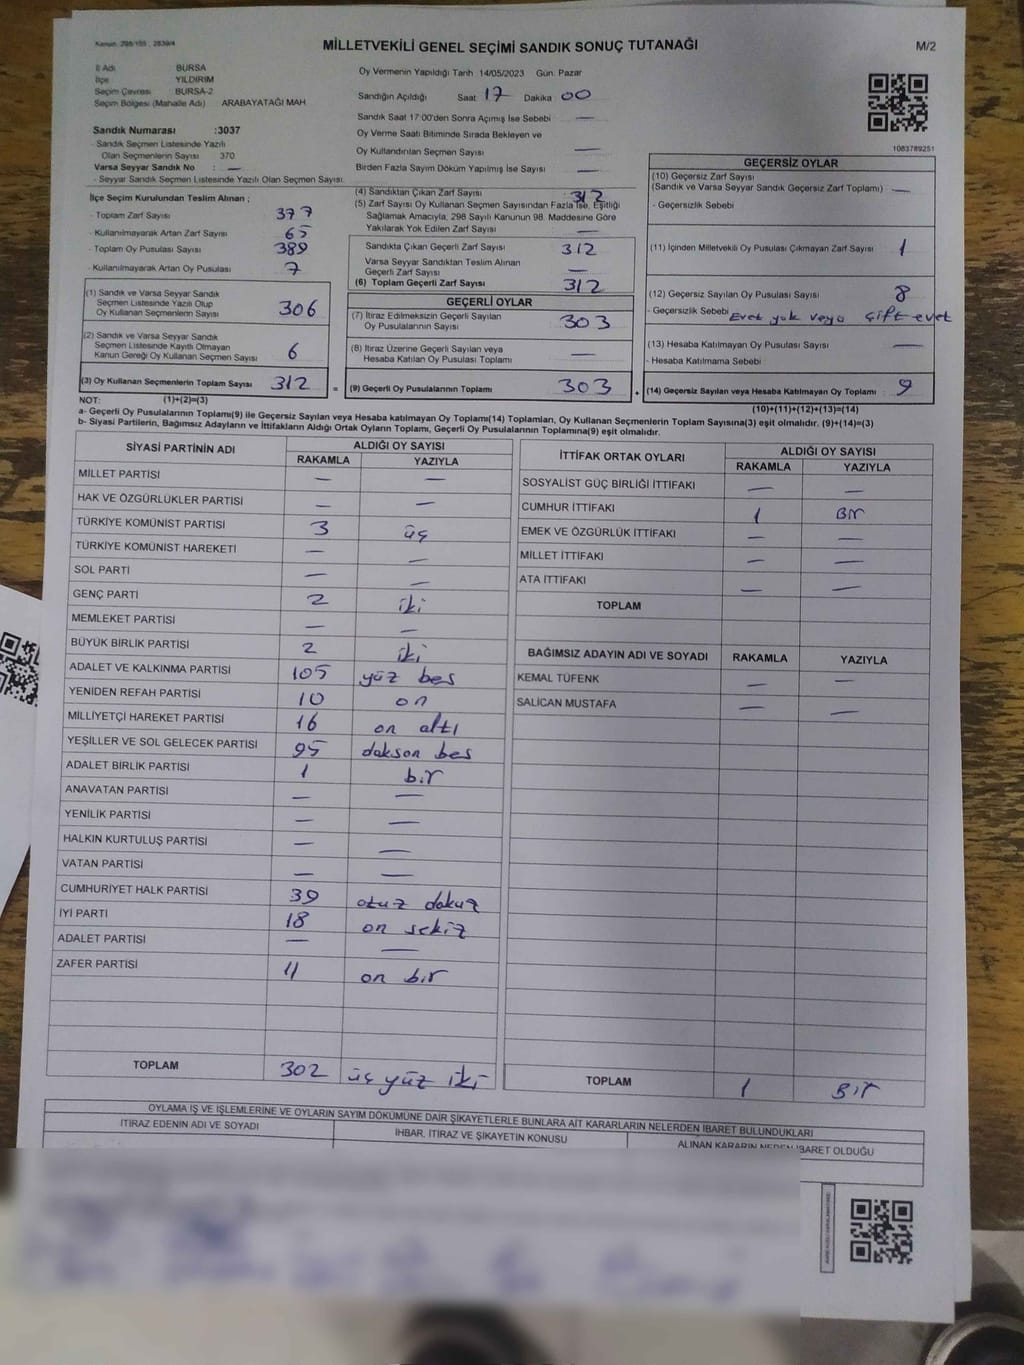 Kanun: 298/105 , 2839/4
MİLLETVEKİLİ GENEL SEÇİMİ SANDIK SONUÇ TUTANAĞI
M/2
İl Adı BURSA
İlçe YILDIRIM
Seçim Çevresi BURSA-2
Seçim Bölgesi (Mahalle Adı) ARABAYATAĞI MAH
Sandık Numarası :3037
- Sandık Seçmen Listesinde Yazılı
Olan Seçmenlerin Sayısı 370
Varsa Seyyar Sandık No : —
- Seyyar Sandık Seçmen Listesinde Yazılı Olan Seçmen Sayısı:
Oy Vermenin Yapıldığı Tarih 14/05/2023 Gün: Pazar
Sandığın Açıldığı Saat 17 Dakika 00
Sandık Saat 17:00'den Sonra Açımış İse Sebebi —
Oy Verme Saati Bitiminde Sırada Bekleyen ve
Oy Kullandırılan Seçmen Sayısı —
Birden Fazla Sayım Döküm Yapılmış İse Sayısı —
1083789251
İlçe Seçim Kurulundan Teslim Alınan ;
- Toplam Zarf Sayısı 377
- Kullanılmayarak Artan Zarf Sayısı 65
- Toplam Oy Pusulası Sayısı 389
- Kullanılmayarak Artan Oy Pusulası 7
(1) Sandık ve Varsa Seyyar Sandık
Seçmen Listesinde Yazılı Olup
Oy Kullanan Seçmenlerin Sayısı 306
(2) Sandık ve Varsa Seyyar Sandık
Seçmen Listesinde Kayıtlı Olmayan
Kanun Gereği Oy Kullanan Seçmen Sayısı 6
(3) Oy Kullanan Seçmenlerin Toplam Sayısı 312 =
(4) Sandıktan Çıkan Zarf Sayısı 312
(5) Zarf Sayısı Oy Kullanan Seçmen Sayısından Fazla İse, Eşitliği
Sağlamak Amacıyla, 298 Sayılı Kanunun 98. Maddesine Göre
Yakılarak Yok Edilen Zarf Sayısı —
Sandıkta Çıkan Geçerli Zarf Sayısı 312
Varsa Seyyar Sandıktan Teslim Alınan
Geçerli Zarf Sayısı —
(6) Toplam Geçerli Zarf Sayısı 312
GEÇERLİ OYLAR
(7) İtiraz Edilmeksizin Geçerli Sayılan
Oy Pusulalarının Sayısı 303
(8) İtiraz Üzerine Geçerli Sayılan veya
Hesaba Katılan Oy Pusulası Toplamı —
(9) Geçerli Oy Pusulalarının Toplamı 303 +
GEÇERSİZ OYLAR
(10) Geçersiz Zarf Sayısı
(Sandık ve Varsa Seyyar Sandık Geçersiz Zarf Toplamı) —
- Geçersizlik Sebebi
(11) İçinden Milletvekili Oy Pusulası Çıkmayan Zarf Sayısı 1
(12) Geçersiz Sayılan Oy Pusulası Sayısı 8
- Geçersizlik Sebebi Evet yok veya çift evet
(13) Hesaba Katılmayan Oy Pusulası Sayısı —
- Hesaba Katılmama Sebebi
(14) Geçersiz Sayılan veya Hesaba Katılmayan Oy Toplamı 9
NOT: (1)+(2)=(3)
(10)+(11)+(12)+(13)=(14)
a- Geçerli Oy Pusulalarının Toplamı(9) ile Geçersiz Sayılan veya Hesaba katılmayan Oy Toplamı(14) Toplamları, Oy Kullanan Seçmenlerin Toplam Sayısına(3) eşit olmalıdır. (9)+(14)=(3)
b- Siyasi Partilerin, Bağımsız Adayların ve İttifakların Aldığı Ortak Oyların Toplamı, Geçerli Oy Pusulalarının Toplamına(9) eşit olmalıdır.
SİYASİ PARTİNİN ADI ALDIĞI OY SAYISI
RAKAMLA YAZIYLA
MİLLET PARTİSİ — —
HAK VE ÖZGÜRLÜKLER PARTİSİ — —
TÜRKİYE KOMÜNİST PARTİSİ 3 üç
TÜRKİYE KOMÜNİST HAREKETİ — —
SOL PARTİ — —
GENÇ PARTİ 2 iki
MEMLEKET PARTİSİ — —
BÜYÜK BİRLİK PARTİSİ 2 iki
ADALET VE KALKINMA PARTİSİ 105 yüz bes
YENİDEN REFAH PARTİSİ 10 on
MİLLİYETÇİ HAREKET PARTİSİ 16 on altı
YEŞİLLER VE SOL GELECEK PARTİSİ 95 dokson bes
ADALET BİRLİK PARTİSİ 1 bir
ANAVATAN PARTİSİ — —
YENİLİK PARTİSİ — —
HALKIN KURTULUŞ PARTİSİ — —
VATAN PARTİSİ — —
CUMHURİYET HALK PARTİSİ 39 otuz dokuz
İYİ PARTİ 18 on sekiz
ADALET PARTİSİ — —
ZAFER PARTİSİ 11 on bir
TOPLAM 302 üç yüz iki
İTTİFAK ORTAK OYLARI ALDIĞI OY SAYISI
RAKAMLA YAZIYLA
SOSYALİST GÜÇ BİRLİĞİ İTTİFAKI — —
CUMHUR İTTİFAKI 1 Bir
EMEK VE ÖZGÜRLÜK İTTİFAKI — —
MİLLET İTTİFAKI — —
ATA İTTİFAKI — —
TOPLAM
BAĞIMSIZ ADAYIN ADI VE SOYADI RAKAMLA YAZIYLA
KEMAL TÜFENK — —
SALİCAN MUSTAFA — —
TOPLAM 1 Bir
OYLAMA İŞ VE İŞLEMLERİNE VE OYLARIN SAYIM DÖKÜMÜNE DAİR ŞİKAYETLERLE BUNLARA AİT KARARLARIN NELERDEN İBARET BULUNDUKLARI
İTİRAZ EDENİN ADI VE SOYADI İHBAR, İTİRAZ VE ŞİKAYETİN KONUSU ALINAN KARARIN NEDEN İBARET OLDUĞU